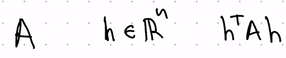 A h ∈ ℝⁿ hᵀAh